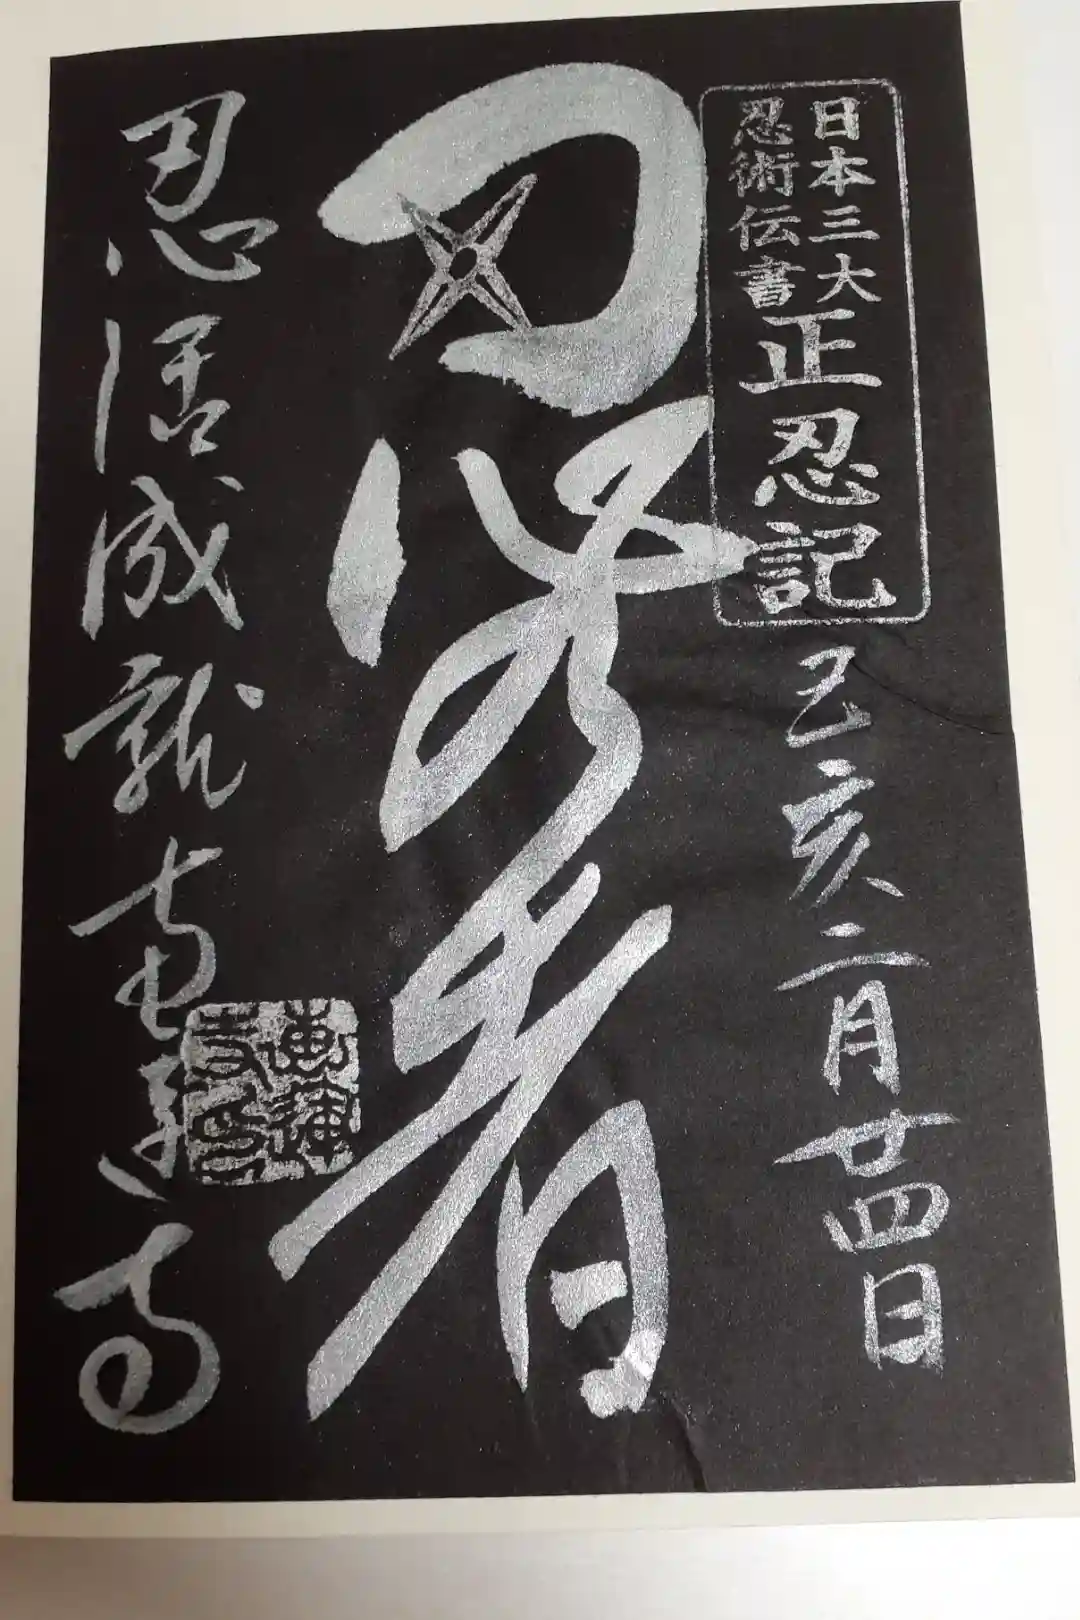 日本三大
忍術伝書
正忍記
己亥二月廿四日
忍者
忍活成就 恵運寺